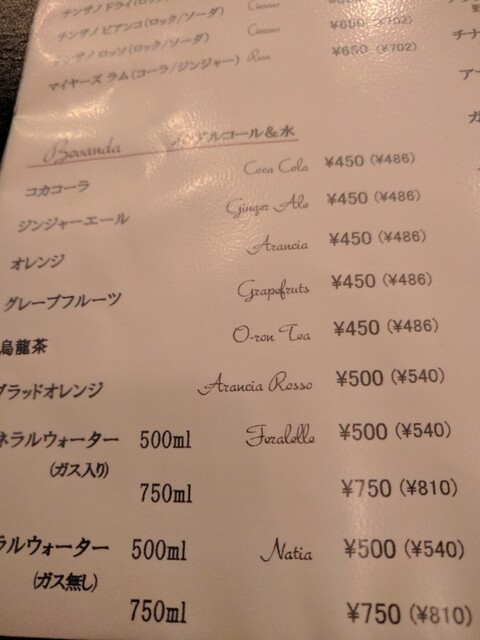 チンザノ ドライ(ロック/
チンザノ ビアンコ(ロック/ソーダ) Cinzano ¥650 (¥702)
チンザノ ロッソ(ロック/ソーダ) Cinzano ¥650 (¥702)
マイヤーズ ラム(コーラ/ジンジャー) Rum
Bevanda ノンアルコール&水
コカコーラ Coca Cola ¥450 (¥486)
ジンジャーエール Ginger Ale ¥450 (¥486)
オレンジ Arancia ¥450 (¥486)
グレープフルーツ Grapefruts ¥450 (¥486)
烏龍茶 O-ron Tea ¥450 (¥486)
ブラッドオレンジ Arancia Rosso ¥500 (¥540)
ネラルウォーター 500ml Feralelle ¥500 (¥540)
(ガス入り)
750ml ¥750 (¥810)
ラルウォーター 500ml Natia ¥500 (¥540)
(ガス無し)
750ml ¥750 (¥810)